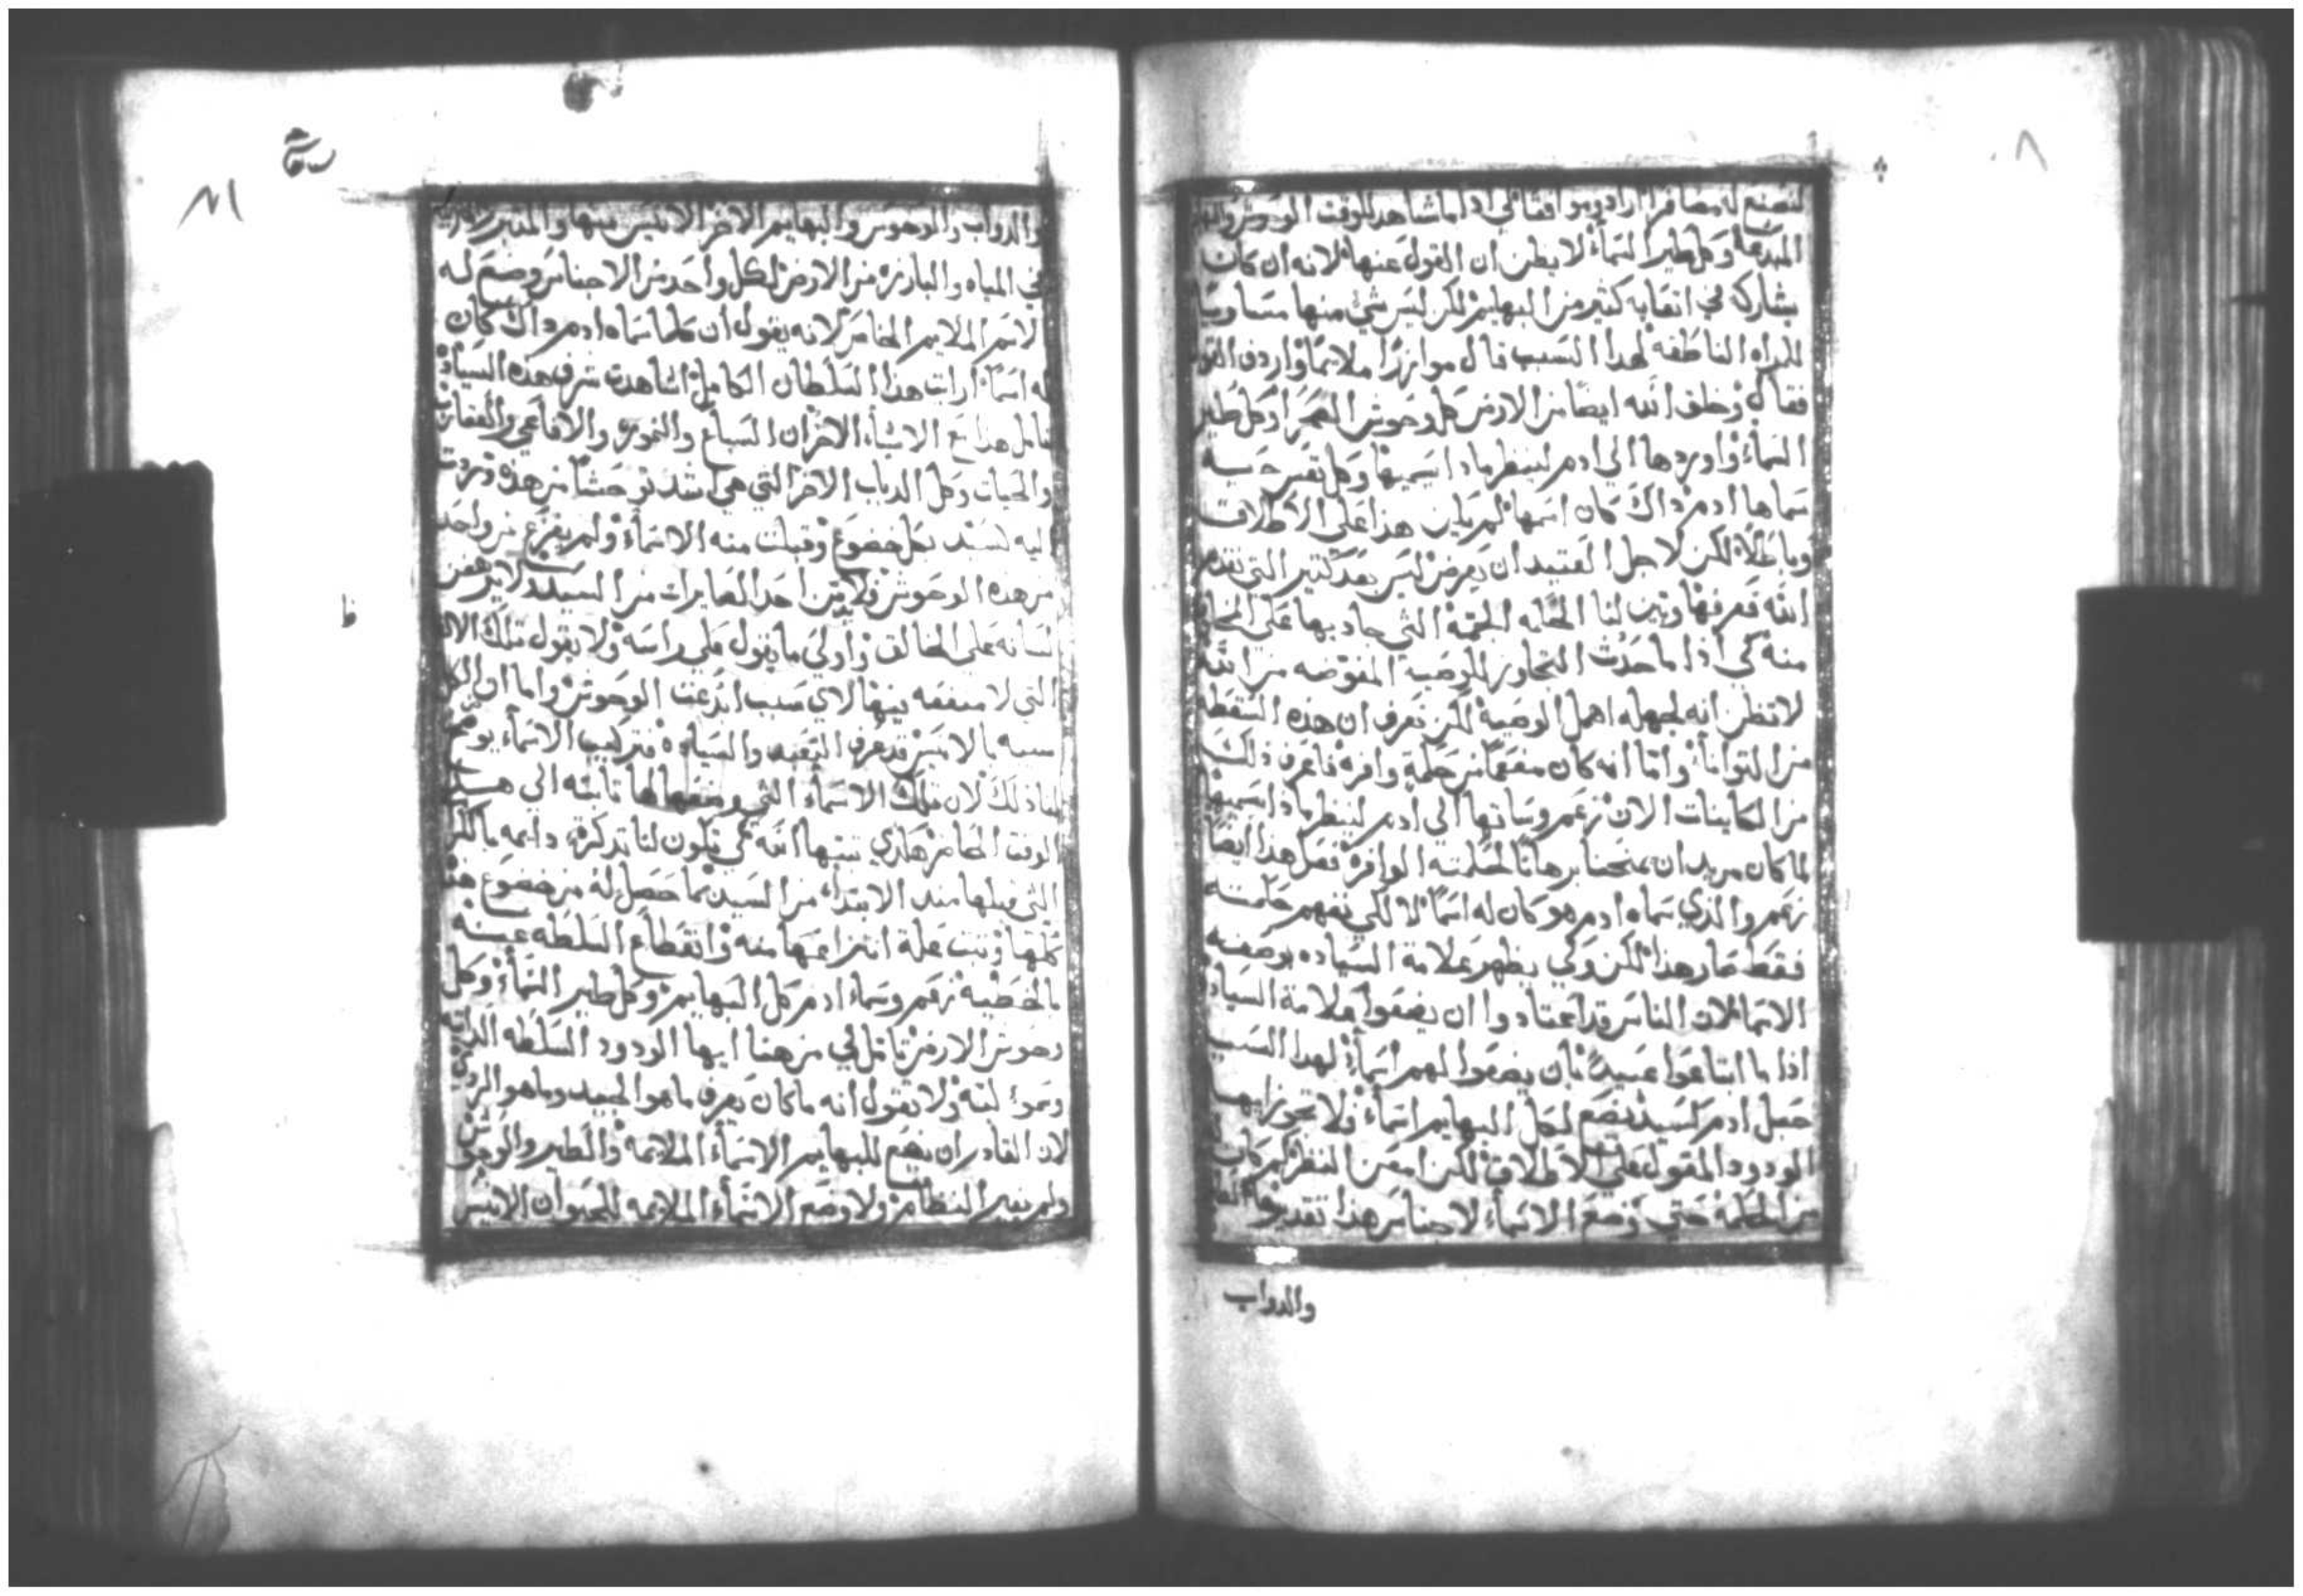 لنصنع له مضافرا رادويوافقا لكي اذا ما شاهد للوقت الوحوش
المبدعة وكل طير السماء لا يظن ان القول عنها لانه ان كان
يشاركه في اتعابه كثير من البهايم لكن ليس شي منها مساويا
للمراه الناطقه لهدا السبب قال موازرا ملايما واردف القول
فقال وخلق الله ايضا من الارض كل وحوش الصحرا وكل طير
السماء واوردها الي ادم لينظر ماذا يسميها وكل نفس حيه
سماها ادم داك كان اسمها لم يكن هذا علي الاطلاق
وباطلا لكن لاجل العتيد ان يعرض ليس بعد كثير التي تقدم
الله فعرفها وتبين لنا الحكمه الجمه التي جاد بها علي المخلوق
منه كي اذا ما حدث التجاوز للوصية المفوضه من الله
لا تظن انه لجهله اهمل الوصية لكن تعرف ان هذه السقطة
من التوانا واما انه كان مفعما من حكمة وافره فاعرف ذلك
من الكاينات الان زعم وساقها الي ادم لينظر ماذا يسميها
لما كان مريد ان يمنحنا برهانا لحكمته الوافره فعل هدا ايضا
زعم والذي سماه ادم هو كان له اسما لا لكي نفهم حكمته
فقط صار هذا لكن وكي يظهر علامة السياده بوضعه
الاسما لان الناس قد اعتادوا ان يضعوا علامة السيادة
اذا ما ابتاعوا عبيدا بان يضعوا لهم اسماء لهدا السبب
جعل ادم كسيد يضع لكل البهايم اسماء فلا تجوز ايها
الودود المقول علي الاطلاق لكن امعن النظر كم كان
من الحكمة حتي وضع الاسماء لاجناس هذا تقديرها
والدواب
والدواب والوحوش والبهايم الاخر الانيس منها والمتبرر
في المياه والبارزه من الارض لكل واحد من الاجناس وضع له
الاسم الملايم الخاص لانه يقول ان كلما سماه ادم داك كان
له اسما ارايت هذا السلطان الكامل اشاهدت شرف هذه السيادة
تامل هدا مع الاشياء الاخر ان السباع والنمور والافاعي والعقارب
والحيات وكل الدباب الاخر التي هي اشد توحشا من هذه
اليه كسيد بكل خضوع وقبلت منه الاسماء ولم يفزع من واحد
من هذه الوحوش فلا من احد الصايرات من السيد لا يرهفن
لسانه علي الخالق واولي ما يقول علي راسه ولا يقول تلك الاقوال
التي لا منفعه بيها لاي سبب ابدعت الوحوش واما
سببه بالانيس قد عرف التعبد والسيادة فتركيب الاسماء يوضح
لنا ذلك لان تلك الاسماء التي وضعها لها ثابته الي هدا
الوقت الحاضر هكدي ثبتها الله كي تكون لنا تدكرة دايمه
التي قبلها مند الابتداء من السيد بما حصل له من خضوع
كلها وتبت علة انتزاعها منه وانقطاع السلطه عينه
بالخطيه زعم وسماء ادم كل البهايم وكل طير السماء وكل
وحوش الارض تامل لي من هنا ايها الودود السلطه
وسمو لبه ولا تقول انه ما كان يعرف ما هو الجيد وما هو الردي
لان القادر ان يضع للبهايم الاسماء الملايمه والطير والوحوش
ولم يغير النظام ولا وضع الاسماء الملايمه للحيوان الانيس